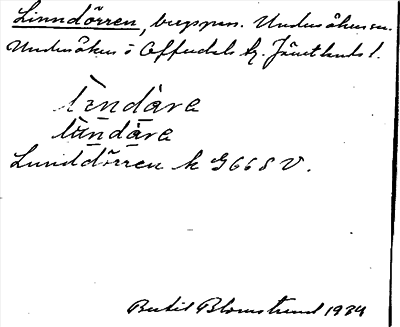 Linndörren, bergspass. Undersåkers sn.
Undersåkers o Offerdals tg. Jämtlands l.
lændåra
lùndåra
Lunddörren k G668V.
Bertil Blomstrand 1934